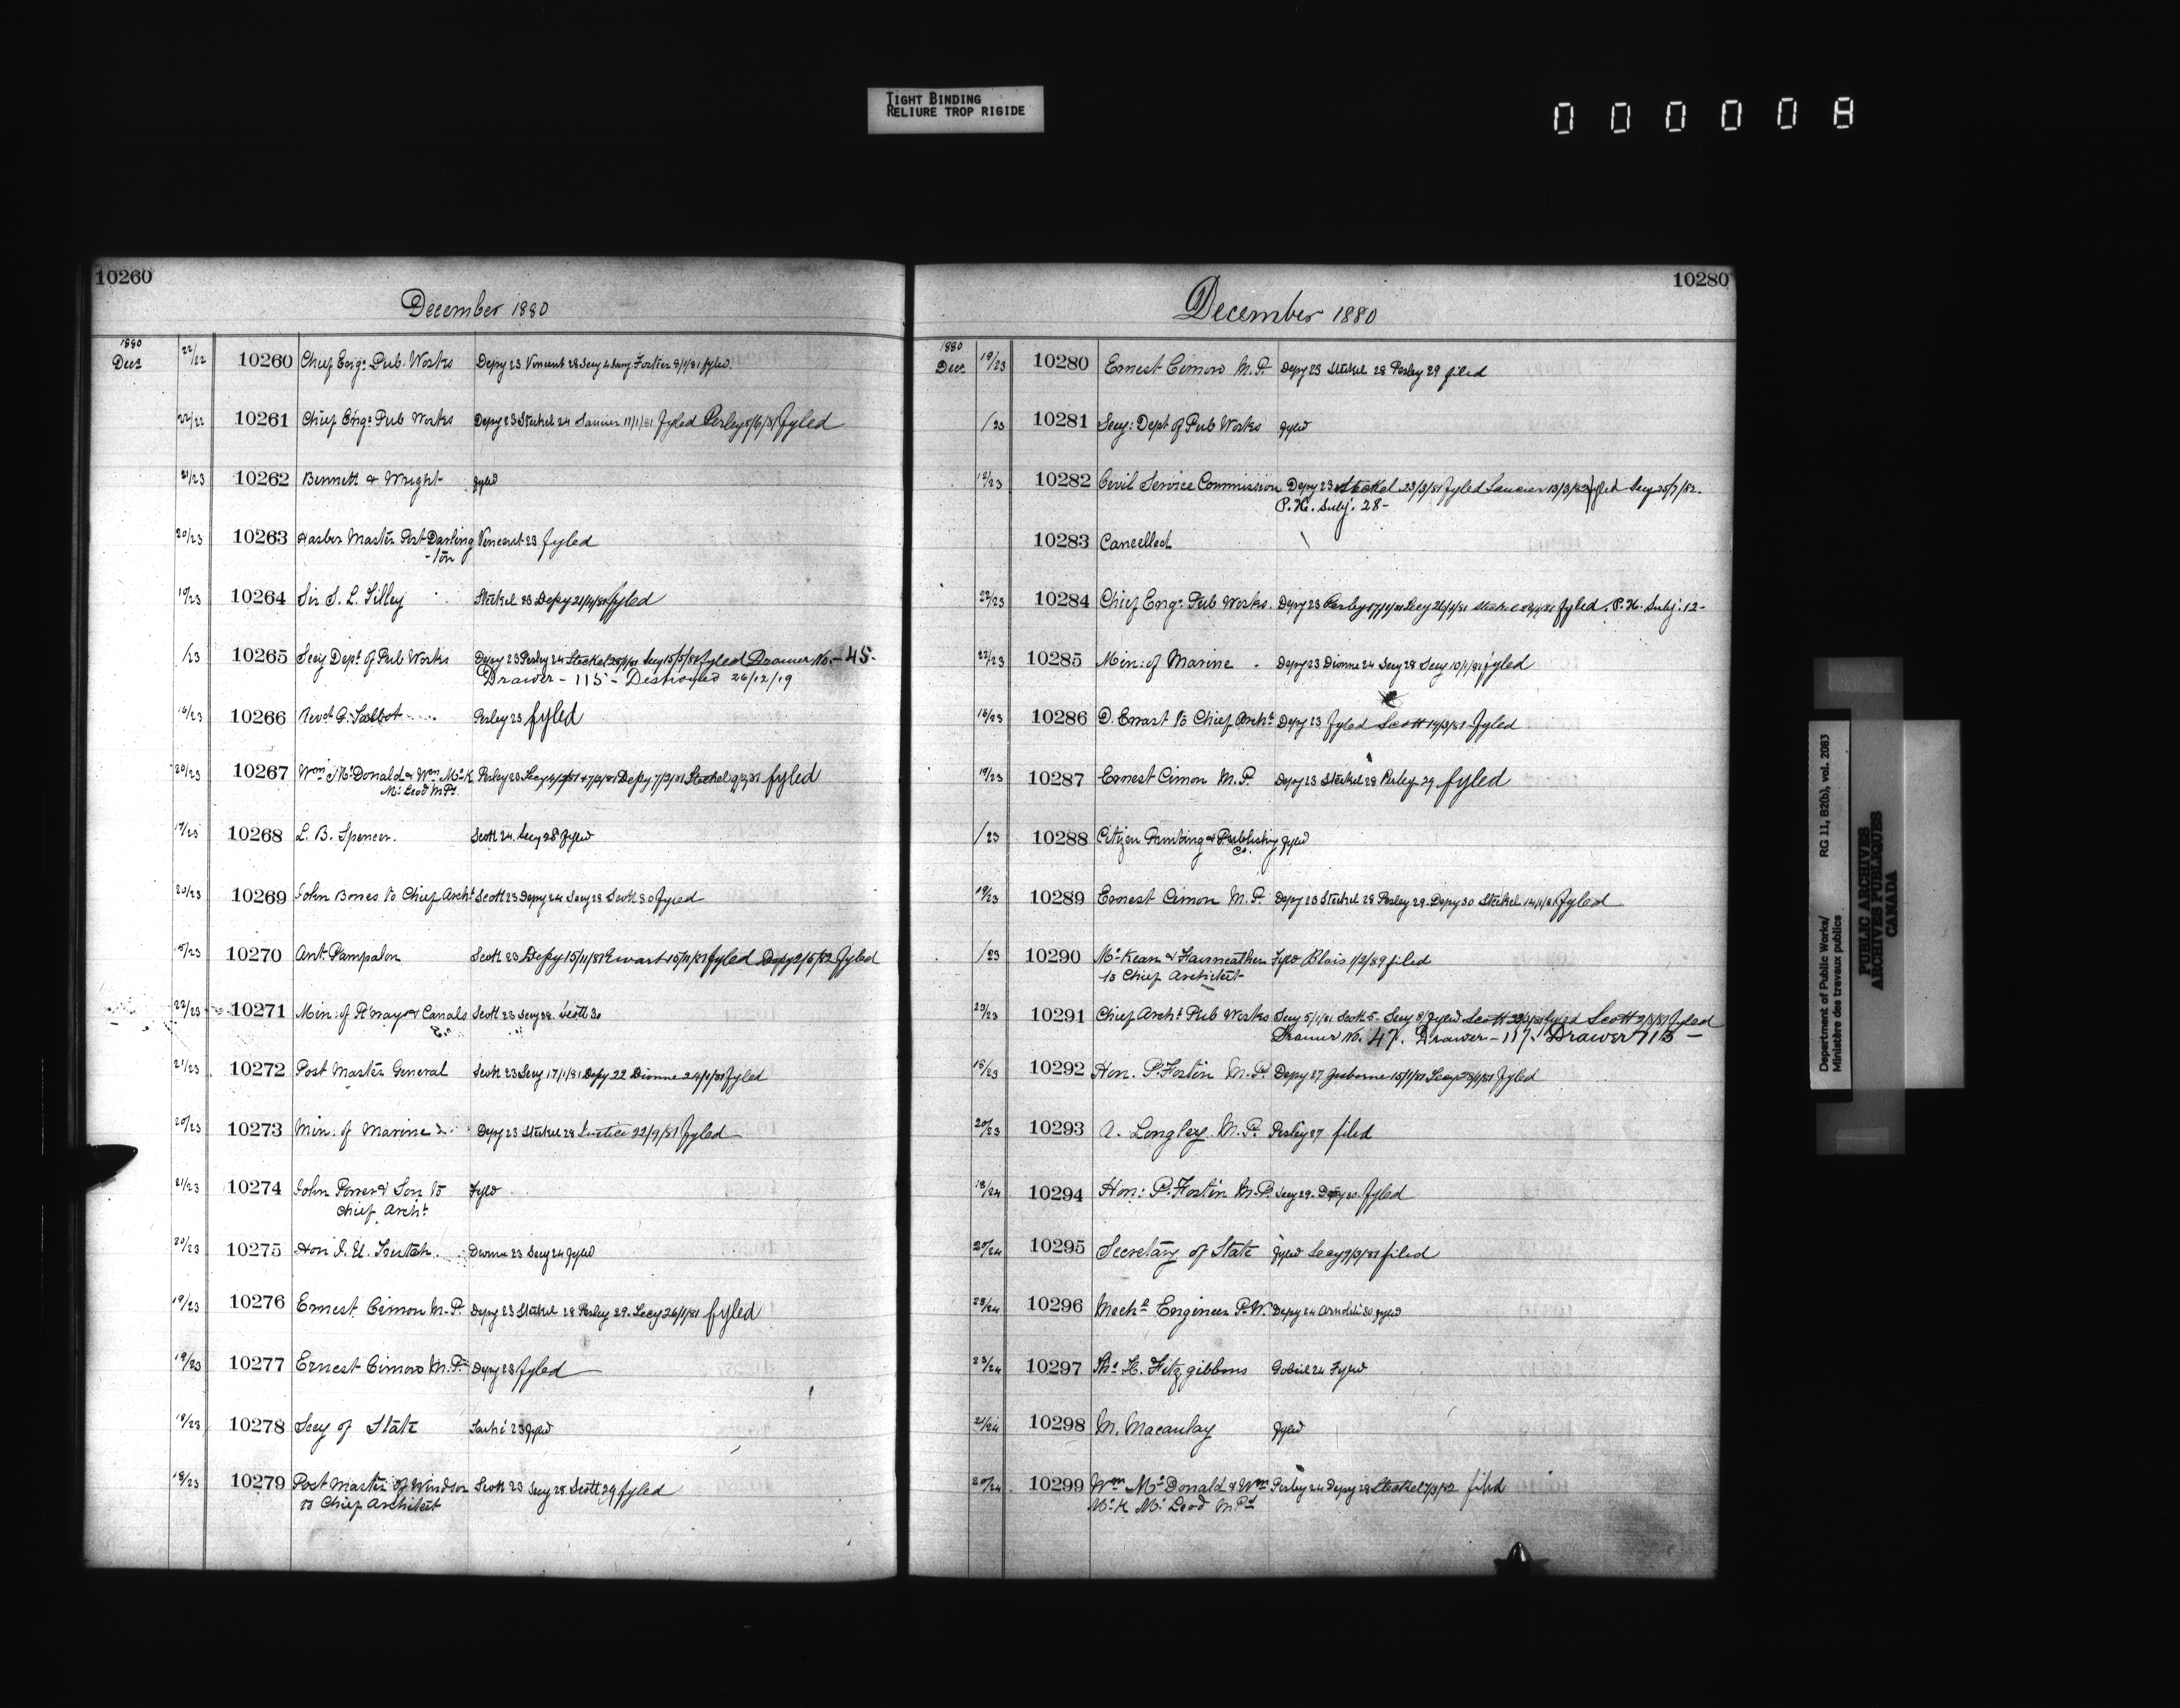 TIGHT BINDING
RELIURE TROP RIGIDE
000008
10260
December 1880
1880
Decr 22/22 10260 Chief Engr Pub. Works Depy 23 Vincent 28 Secy 4 Jany Fortier 8/1/81 fyled.
22/22 10261 Chief Engr Pub Works Depy 23 Steckel 24 Saucier 11/1/81 fyled Perley 8/6/81 fyled
21/23 10262 Bennett & Wright fyled
20/23 10263 Harbor Master Port Darling Vincent 23 fyled
-ton
19/23 10264 Sir S. L. Tilley Steckel 23 Depy 21/4/81 fyled
/23 10265 Secy Dept of Pub Works Depy 23 Perley 24 Steckel 25/1/81 Secy 15/5/81 fyled Drawer No. - 45 -
Drawer - 115 - Destroyed 26/12/19
16/23 10266 Revd G. Talbot Perley 23 fyled
20/23 10267 Wm McDonald & Wm McK Perley 23 Depy 7/2/81 Steckel 9/2/81 fyled
McLeod MPs
17/23 10268 L. B. Spencer. Scott 24. Secy 28 fyled
20/23 10269 John Bones to Chief Archt Scott 23 Depy 24 Secy 28 Scott 30 fyled
15/23 10270 Ant. Pampalon Scott 23 Depy 15/11/81 Ewart 15/11/81 fyled Depy 2/5/82 fyled
22/23 10271 Min: of R. ways & Canals Scott 23 Secy 28. Scott 30
21/23 10272 Post Master General Scott 23 Secy 17/1/81 Depy 22 Dionne 24/1/81 fyled
20/23 10273 Min. of Marine Depy 23 Steckel 28 Justice 22/9/81 fyled
21/23 10274 John Power & Son to fyled
Chief Archt
20/23 10275 Hon J. W. Trutch. Dionne 23 Secy 24 fyled
19/23 10276 Ernest Cimon M.P. Depy 23 Steckel 28 Perley 29. Secy 26/1/81 fyled
19/23 10277 Ernest Cimon M.P. Depy 23 fyled
18/23 10278 Secy of State Taché 23 fyled
18/23 10279 Post Master of Windsor Scott 23 Secy 28 Scott 29 fyled
to Chief Architect
10280
December 1880
1880
Decr 19/23 10280 Ernest Cimon M.P. Depy 23 Steckel 28 Perley 29 filed
/23 10281 Secy: Dept of Pub Works fyled
18/23 10282 Civil Service Commission Depy 23 Steckel 23/3/81 fyled Saucier 13/3/82 fyled Secy 25/7/82.
P.H. Subj. 28 -
10283 Cancelled
22/23 10284 Chief Engr Pub Works. Depy 23 Perley 17/1/81 Secy 26/1/81 fyled. P.H. Subj. 12 -
22/23 10285 Min: of Marine Depy 23 Dionne 24 Secy 28 Secy 10/1/81 fyled
16/23 10286 D. Ewart to Chief Archt Depy 23 fyled Scott 19/3/81 fyled
19/23 10287 Ernest Cimon M.P. Depy 23 Steckel 28 Perley 29 fyled
/23 10288 Citizen Printing & Publishing fyled
Co.
19/23 10289 Ernest Cimon M.P. Depy 23 Steckel 28 Perley 29. Depy 30 Steckel 14/1/81 fyled
/23 10290 McKean & Fairweather fyled Blais 1/2/89 filed
to Chief Architect
23/23 10291 Chief Archt Pub Works Secy 5/1/81 Scott 5 - Secy 8/ fyled Scott fyled Scott 7/5/81 fyled
Drawer No. 47. Drawer - 117. Drawer 715 -
15/23 10292 Hon. P. Fortin M.P. Depy 27 Gisborne 15/1/81 Secy 28/1/81 fyled
20/23 10293 A. Longley M.P. Perley 27 filed
18/24 10294 Hon: P. Fortin M.P. Secy 29. Depy 30. fyled
20/24 10295 Secretary of State fyled Secy 9/3/81 filed
23/24 10296 Mechl Engineer P.W. Depy 24 Arnoldi 30 fyled
23/24 10297 Ths H. Fitzgibbons Gobeil 24 fyled
21/24 10298 M. Macaulay fyled
20/24 10299 Wm McDonald & Wm Perley 24 Depy 28 Steckel 7/3/82 filed
McK McLeod MPs
Department of Public Works/ RG 11, B2(b), vol. 2083
Ministère des travaux publics
PUBLIC ARCHIVES
ARCHIVES PUBLIQUES
CANADA